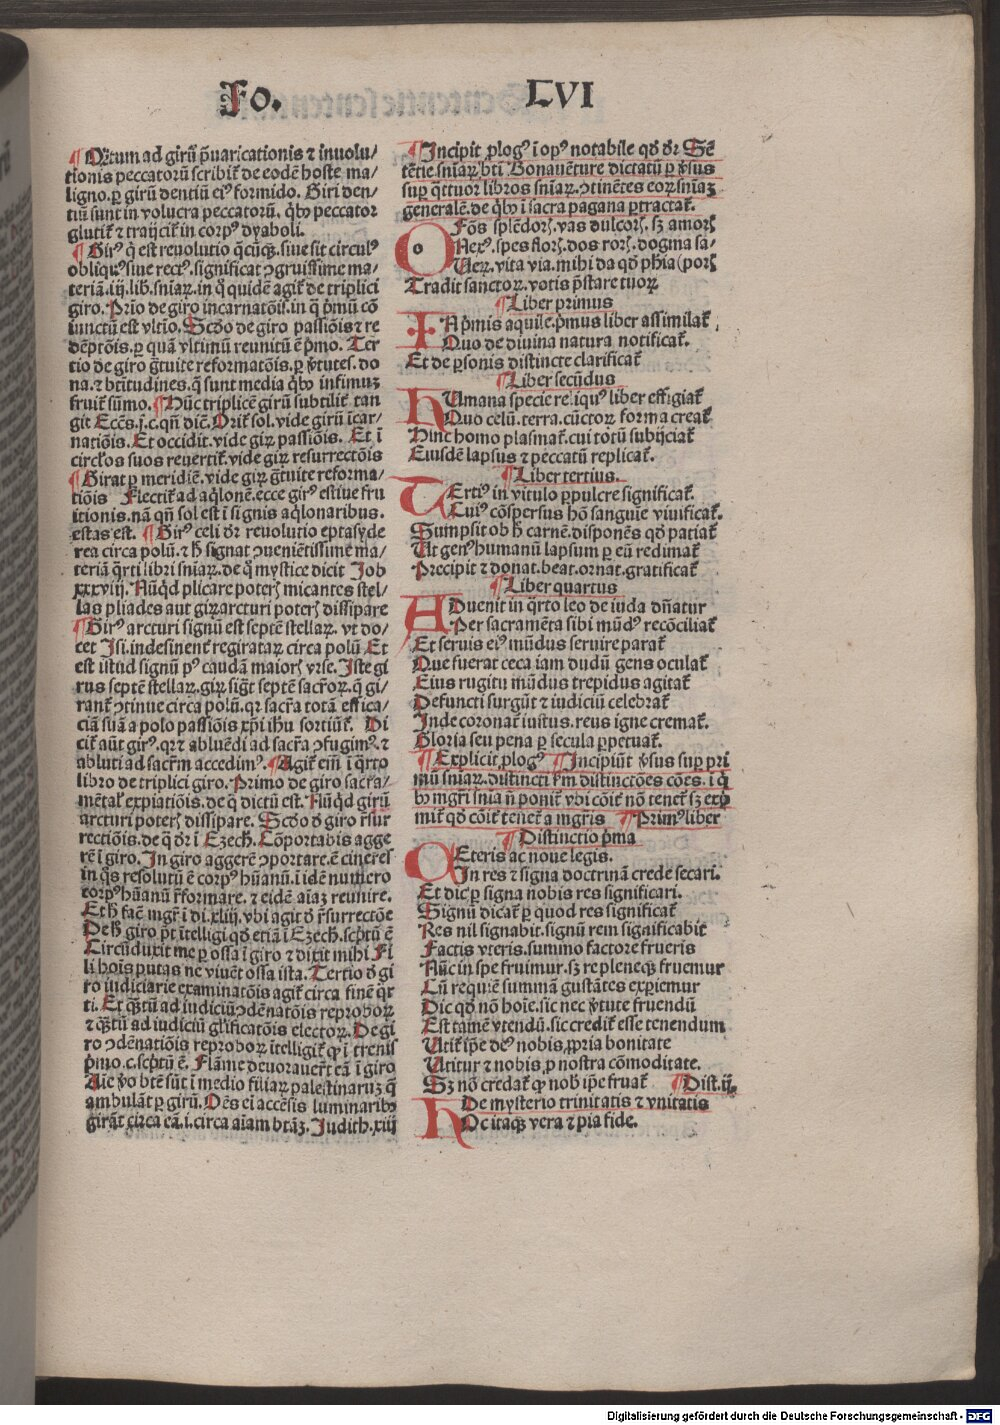 Fo. LVI
¶ Q̄ꝫtum ad girū p̄uaricationis ⁊ inuolu/
tionis peccatorū scribiꝉ de eodē hoste ma/
ligno. ꝑ girū dentiū eiꝰ formido. Giri den/
tiū sunt in volucra peccatorū. q̇bꝰ peccator
glutiꝉ ⁊ traijciꝉ in corpꝰ dyaboli.
¶ Girꝰ q̇ est reuolutio q̄cūqꝫ. siue sit circulꝰ
obliquꝰ siue rectꝰ. significat ꝯgruissime ma/
teriā. iij. lib. sniaꝝ. in q̇ quidē agiꝉ de triplici
giro. Prio de giro incarnatōis. in q̇ pͥmū cō
iunctū est vltio. Scd̄o de giro passiōis ⁊ re
dēptōis. ꝑ quā vltimū reunitū ē pͥmo. Ter
tio de giro gͣtuite reformatōis. ꝑ v̄tutes. do
na. ⁊ btitudines. q̄ sunt media q̇bꝰ infimuꝫ
fruiꝉ sūmo. ¶ Hūc triplicē girū subtiliꝉ tan
git Eccēs. j. c. qn̄ dic̄. Oriꝉ sol. vide girū īcar/
natiōis. Et occidit. vide giꝝ passiōis. Et ī
circƚos suos reuertiꝉ. vide giꝝ resurrectōis
¶ Girat ꝑ meridiē. vide giꝝ gͣtuite reforma/
tiōis Flectiꝉ ad aq̇lonē. ecce girꝰ estiue fru
itionis. nā qn̄ sol est ī signis aq̇lonaribus.
estas est. ¶ Girꝰ celi dr̄ reuolutio eptasyde
rea circa polū. ⁊ ħ signat ꝯueniētissime ma/
teriā q̄rti libri sniaꝝ. de q̇ mystice dicit Job
xxxviij. Nūq̇d plicare poterꝭ micantes stel/
las pliades aut giꝝ arcturi poterꝭ dissipare
¶ Girꝰ arcturi signū est septē stellaꝝ. vt do/
cet Isi. indesinenꝉ regirataꝝ circa polū Et
est istud signū pꝰ caudā maiorꝭ vrse. Iste gi
rus septē stellaꝝ. giꝝ sigͣt septē sacͣroꝝ. q̄ gi/
ranꝉ ꝯtinue circa polū. qꝛ sacͣra totā effica/
ciā suā a polo passiōis xp̄i ihū sortiūꝉ. Di
ciꝉ aūt girꝰ. qꝛ ⁊ abluēdi ad sacͣra ꝯfugimꝰ. ⁊
abluti ad sacͣm accedimꝰ. ¶ Agiꝉ eīm ī q̄rto
libro de triplici giro. Primo de giro sacra/
mētaƚ expiatiōis. de q̇ dictū est. Nūq̇d girū
arcturi poterꝭ dissipare. Scd̄o d̄ giro r̄sur
rectiōis. de q̇ dr̄ ī Ezecħ. Cōportabis agge
rē ī giro. In giro aggerē ꝯportare. ē cineres
in q̇s resolutū ē corpꝰ hūanū. ī idē numero
corpꝰ hūanū r̄formare. ⁊ eidē aīaꝫ reunire.
Et ħ faē mgr̄ ī di. xliij. vbi agit d̄ r̄surrectōe
De ħ giro p̄t ītelligi qd̄ etiā ī Ezecħ. scp̄tū ē
Circūduxit me ꝑ ossa ī giro ⁊ dixit mihi Fi
li hoīs putas ne viuēt ossa ista. Tertio d̄ gi
ro iudiciarie examinatōis agiꝉ circa finē q̄r
ti. Et q̄ꝫtū ad iudiciū ꝯdēnatōis reproboꝝ
⁊ q̄ꝫtū ad iudiciū glīficatōis electoꝝ. De gi
ro ꝯdēnatiōis reproboꝝ ītelligiꝉ ꝙ ī trenis
pͥmo. c. scp̄tū ē. Flāme deuorauerūt eā ī giro
Aie v̄o btē sūt ī medio filiaꝝ palestinaruꝫ q̄
ambulāt ꝑ girū. Oēs ei accēsis luminaribꝰ
girāt circa eā. i. circa aiam btāꝫ. Judith. xiij
¶ Incipit ꝓlogꝰ ī opꝰ notabile qd̄ dr̄ Sē
tētie sniaꝝ bti Bonauēture dictatū ꝑ v̄sus
suꝑ q̄ttuor libros sniaꝝ. ꝯtinētes eoꝝ sniaꝫ
generalē. de q̇bꝰ ī sacra pagana ꝑtractaꝉ.
O Fōs splēdorꝭ. vas dulcorꝭ. sꝫ amorꝭ
Nexꝰ. spes florꝭ. dos rorꝭ. dogma sa/
Ueꝝ. vita via. mihi da qd̄ phīa (porꝭ
Tradit sanctoꝝ. votis p̄stare tuoꝝ
¶ Liber primus
I Npͥmis aquile. pͥmus liber assimilaꝉ.
Quo de diuina natura notificaꝉ.
Et de ꝑsonis distincte clarificaꝉ
¶ Liber secūdus
H Umana specie reliquꝰ liber effigiaꝉ
Quo celū. terra. cūctoꝝ forma creaꝉ
Hinc homo plasmaꝉ. cui totū subijciaꝉ
Eiusdē lapsus ⁊ peccatū replicaꝉ.
¶ Liber tertius.
T Ertiꝰ in vitulo ꝑpulcre significaꝉ.
Cuiꝰ cōspersus hō sanguīe viuificaꝉ.
Sumpsit ob ħ carnē. disponēs qd̄ patiaꝉ
Ut genꝰ humanū lapsum ꝑ eū redimaꝉ
Precipit ⁊ donat. beat. ornat. gratificaꝉ
¶ Liber quartus
A Duenit in q̄rto leo de iuda dn̄atur
Per sacramēta sibi mūdꝰ recōciliaꝉ
Et seruis eiꝰ mūdus seruire paraꝉ
Que fuerat ceca iam dudū gens oculaꝉ
Eius rugitu mūdus trepidus agitaꝉ
Defuncti surgūt ⁊ iudiciū celebraꝉ
Inde coronaꝉ iustus. reus igne cremaꝉ.
Gloria seu pena ꝑ secula ꝑpetuaꝉ.
¶ Explicit ꝓlogꝰ ¶ Incipiūt v̄sus suꝑ pri
mū sniaꝝ. distincti ẜm distinctōes cōes. ī q̇
bꝰ mgr̄i snia n̄ poniꝉ vbi cōiꝉ nō teneꝉ sꝫ exp̄
miꝉ qd̄ cōiꝉ teneꝉ a mgris ¶ Primꝰ liber
¶ Distinctio pͥma
U Eteris ac noue legis.
In res ⁊ signa doctrinā crede secari.
Et dic ꝑ signa nobis res significari.
Signū dicaꝉ ꝑ quod res significaꝉ
Res nil signabit. signū rem significabit
Factis vteris. summo factore frueris
Nūc in spe fruimur. sꝫ re pleneqꝫ fruemur
Cū requiē summā gustātes exꝑiemur
Dic qd̄ nō hoīe. sic nec v̄tute fruendū
Est tamē vtendū. sic crediꝉ esse tenendum
Utiꝉ ip̄e deꝰ nobis, ꝓpria bonitate
Utitur ⁊ nobis, ꝓ nostra cōmoditate.
Sꝫ nō credaꝉ ꝙ nob̄ ip̄e fruaꝉ ¶ Dist. ij.
De mysterio trinitatis ⁊ vnitatis
H Oc itaqꝫ vera ⁊ pia fide.
Digitalisierung gefördert durch die Deutsche Forschungsgemeinschaft - DFG